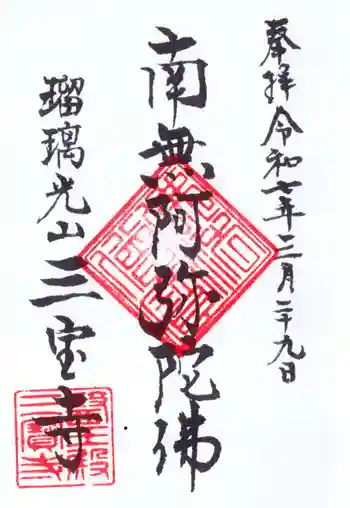 奉拝 令和七年二月二十九日
南無阿弥陀佛
瑠璃光山三宝寺